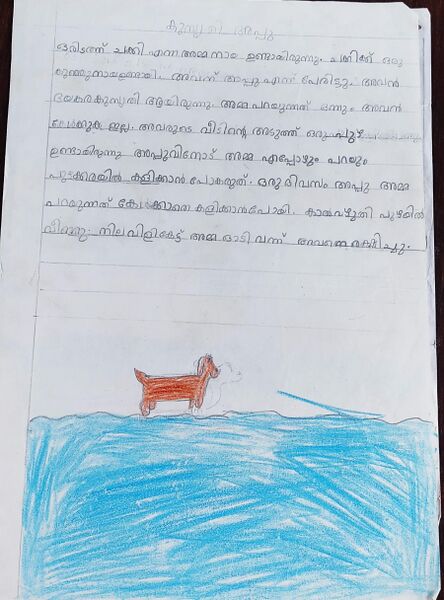 കുസൃതി അപ്പു
ഒരിടത്ത് ചക്കി എന്ന അമ്മ നായ ഉണ്ടായിരുന്നു. ചക്കിക്ക് ഒരു
കുഞ്ഞുനായ ഉണ്ടായി. അവന് അപ്പു എന്ന് പേരിട്ടു. അവൻ
ഭയങ്കരകുസൃതി ആയിരുന്നു. അമ്മ പറയുന്നത് ഒന്നും അവൻ
കേൾക്കുക ഇല്ല. അവരുടെ വീടിന്റെ അടുത്ത് ഒരു പുഴ
ഉണ്ടായിരുന്നു അപ്പുവിനോട് അമ്മ എപ്പോഴും പറയും
പുഴക്കരയിൽ കളിക്കാൻ പോകരുത്. ഒരു ദിവസം അപ്പു അമ്മ
പറയുന്നത് കേൾക്കാതെ കളിക്കാൻപോയി. കാൽവഴുതി പുഴയിൽ
വീണു. നിലവിളികേട്ട് അമ്മ ഓടി വന്ന് അവനെ രക്ഷിച്ചു.